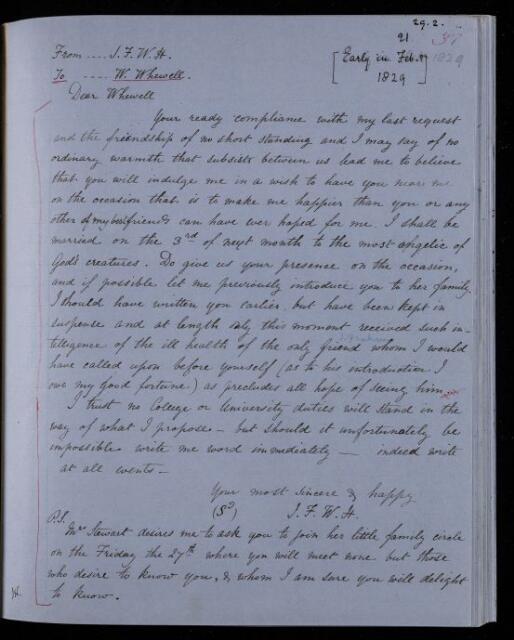 29.2.
21
37
From .... J. F. W. H.
[Early in Feb.y 1829
To .... W. Whewell.
1829]
Dear Whewell
Your ready compliance with my last request
and the friendship of no short standing and I may say of no
ordinary warmth that subsists between us lead me to believe
that you will indulge me in a wish to have you near me
on the occasion that is to make me happier than you or any
other of my best friends can have ever hoped for me. I shall be
married on the 3rd of next month to the most angelic of
God's creatures. Do give us your presence on the occasion,
and if possible let me previously introduce you to her family.
I should have written you earlier, but have been kept in
suspense and at length only this moment received such in-
telligence of the ill health of the only friend whom I would
have called upon before yourself (as to his introduction I
owe my good fortune) as precludes all hope of seeing him.
I trust no College or University duties will stand in the
way of what I propose - but should it unfortunately be
impossible write me word immediately — indeed write
at all events -
Your most sincere & happy
(Sd) J. F. W. H.
P.S.
Mrs Stewart desires me to ask you to join her little family circle
on the Friday the 27th where you will meet none but those
who desire to know you, & whom I am sure you will delight
to know.